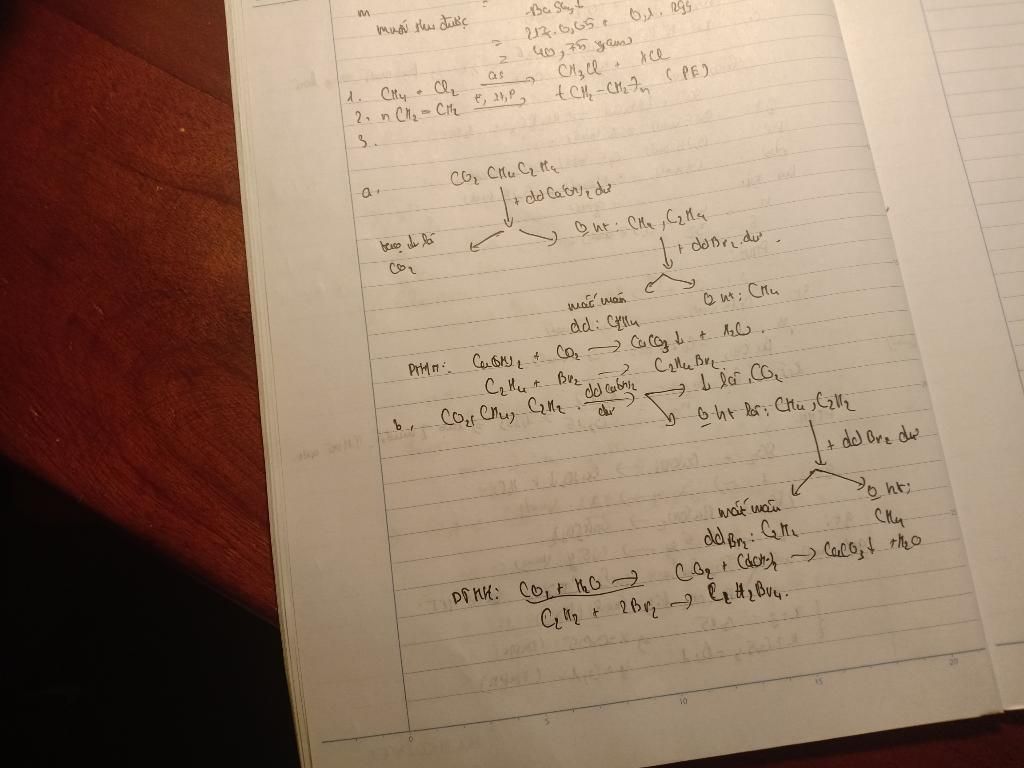 m
muối thu được = BaSO4↓
= 217.0,05 + 0,1.294
= 40,75 gam
1. CH4 + Cl2 as→ CH3Cl + HCl
2. nCH2=CH2 t°, xt, p→ (CH2-CH2)n (PE)
3.
a. CO2 CH4 C2H4
↓ + dd Ca(OH)2 dư
CO2
0 ht: CH4, C2H4
↓ + ddBr2 dư.
mất màu
dd: C2H4
0 ht: CH4
PTHH: Ca(OH)2 + CO2 → CaCO3↓ + H2O.
C2H4 + Br2 → C2H4Br2
b, CO2, CH4, C2H2. dd Ca(OH)2 dư→ ↓ là, CO2
0 ht là: CH4, C2H2
↓ + dd Br2 dư
mất màu
dd Br2: C2H2
0 ht:
CH4
PTHH: CO2 + H2O → CO2 + Ca(OH)2 → CaCO3↓ + H2O
C2H2 + 2Br2 → C2H2Br4.
0 5 10 15 20